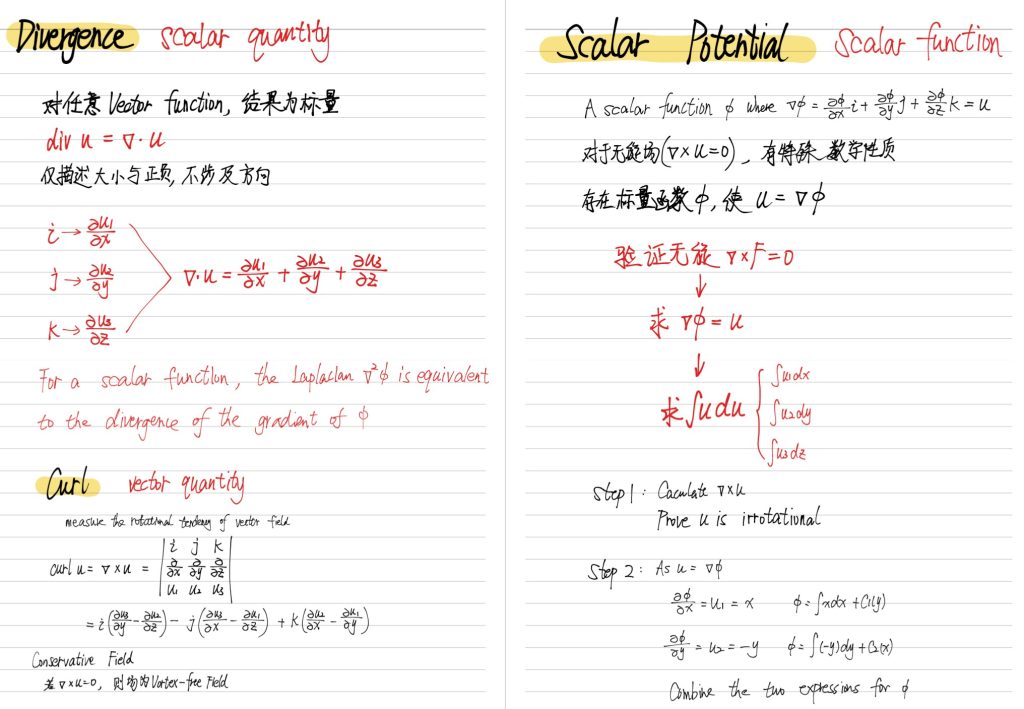 Divergence scalar quantity
对任意 Vector function, 结果为标量
div u = ∇·u
仅描述大小与正负, 不涉及方向
i → ∂u₁/∂x
j → ∂u₂/∂y
k → ∂u₃/∂z
∇·u = ∂u₁/∂x + ∂u₂/∂y + ∂u₃/∂z
For a scalar function, the Laplacian ∇²ϕ is equivalent
to the divergence of the gradient of ϕ
Curl vector quantity
measure the rotational tendency of vector field
curl u = ∇×u = | i j k |
| ∂/∂x ∂/∂y ∂/∂z |
| u₁ u₂ u₃ |
= i(∂u₃/∂y - ∂u₂/∂z) - j(∂u₃/∂x - ∂u₁/∂z) + k(∂u₂/∂x - ∂u₁/∂y)
Conservative Field
若 ∇×u=0, 则 Vortex-free Field
Scalar Potential Scalar function
A scalar function ϕ where ∇ϕ = ∂ϕ/∂x i + ∂ϕ/∂y j + ∂ϕ/∂z k = u
对于无旋场(∇×u=0), 有特殊数学性质
存在标量函数ϕ, 使 u = ∇ϕ
验证无旋 ∇×F=0
↓
求 ∇ϕ = u
↓
求 ∫u du { ∫u₁dx
∫u₂dy
∫u₃dz
Step 1: Caculate ∇×u
Prove u is irrotational
Step 2: As u = ∇ϕ
∂ϕ/∂x = u₁ = x ϕ = ∫xdx + C₁(y)
∂ϕ/∂y = u₂ = -y ϕ = ∫(-y)dy + C₂(x)
Combine the two expressions for ϕ